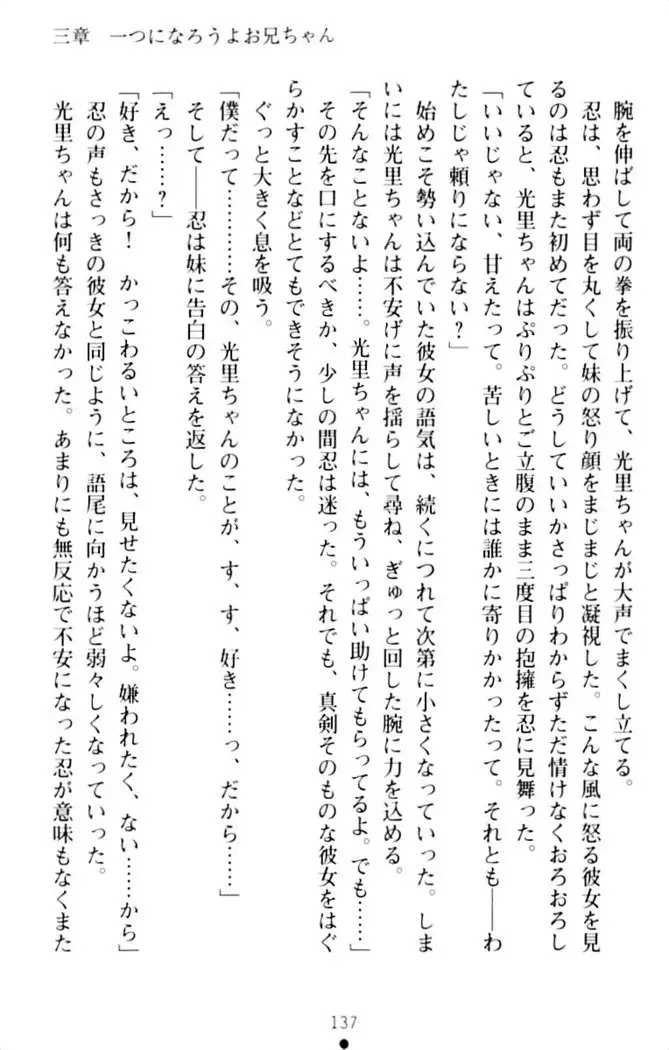 三章　一つになろうよお兄ちゃん
腕を伸ばして両の拳を振り上げて、光里ちゃんが大声でまくし立てる。
忍は、思わず目を丸くして妹の怒り顔をまじまじと凝視した。こんな風に怒る彼女を見
るのは忍もまた初めてだった。どうしていいかさっぱりわからずただ情けなくおろおろし
ていると、光里ちゃんはぷりぷりとご立腹のまま三度目の抱擁を忍に見舞った。
「いいじゃない、甘えたって。苦しいときには誰かに寄りかかったって。それとも――わ
たしじゃ頼りにならない？」
始めこそ勢い込んでいた彼女の語気は、続くにつれて次第に小さくなっていった。しま
いには光里ちゃんは不安げに声を揺らして尋ね、ぎゅっと回した腕に力を込める。
「そんなことないよ……。光里ちゃんには、もういっぱい助けてもらってるよ。でも……」
その先を口にするべきか、少しの間忍は迷った。それでも、真剣そのものな彼女をはぐ
らかすことなどとてもできそうになかった。
ぐっと大きく息を吸う。
「僕だって…………その、光里ちゃんのことが、す、す、好き……っ、だから……」
そして――忍は妹に告白の答えを返した。
「えっ……？」
「好き、だから！　かっこわるいところは、見せたくないよ。嫌われたく、ない……から」
忍の声もさっきの彼女と同じように、語尾に向かうほど弱々しくなっていった。
光里ちゃんは何も答えなかった。あまりにも無反応で不安になった忍が意味もなくまた
137